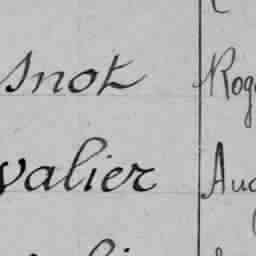 snot Rog
valier Aug